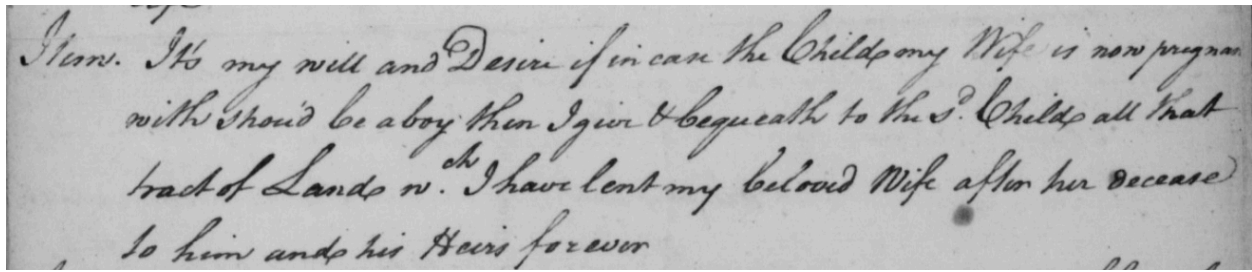 Item. It's my will and Desire if in case the Child my Wife is now pregnan
with shou'd be a boy then I give & bequeath to the sd. Child all that
tract of Land wch. I have lent my beloved Wife after her decease
to him and his Heirs forever